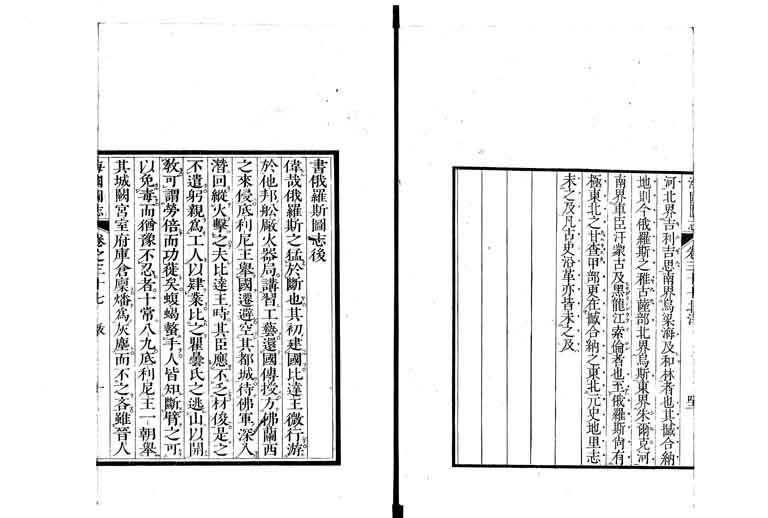 河北界吉利吉思南界烏梁海及和林者也其撼合納
地則今俄羅斯之雅古薩部北界烏斯東界朱爾克河
南界車臣汗蒙古及黑龍江索倫者也至俄羅斯尙有
極東北之甘查甲部更在撼合納之東北元史地里志
未之及凡古史沿革亦皆未之及
書俄羅斯圖志後
偉哉俄羅斯之猛於斷也其初建國比達王微行游
於他邦船廠火器局講習工藝還國傳授方佛蘭西
之來侵底利尼王舉國遷避空其都城待佛軍深入
潛回縱火擊之夫比達王時其臣應不乏材俊是之
不遣躬親爲工人以肄業比之瞿曇氏之逃山以開
敎可謂勞倍而功蓰矣蝮蝎螫手人皆知斷臂之可
以免毒而猶豫不忍者十常八九底利尼王一朝舉
其城闕宮室府庫倉廩燔爲灰塵而不之吝雖晉人
海國圖志
卷之三十七